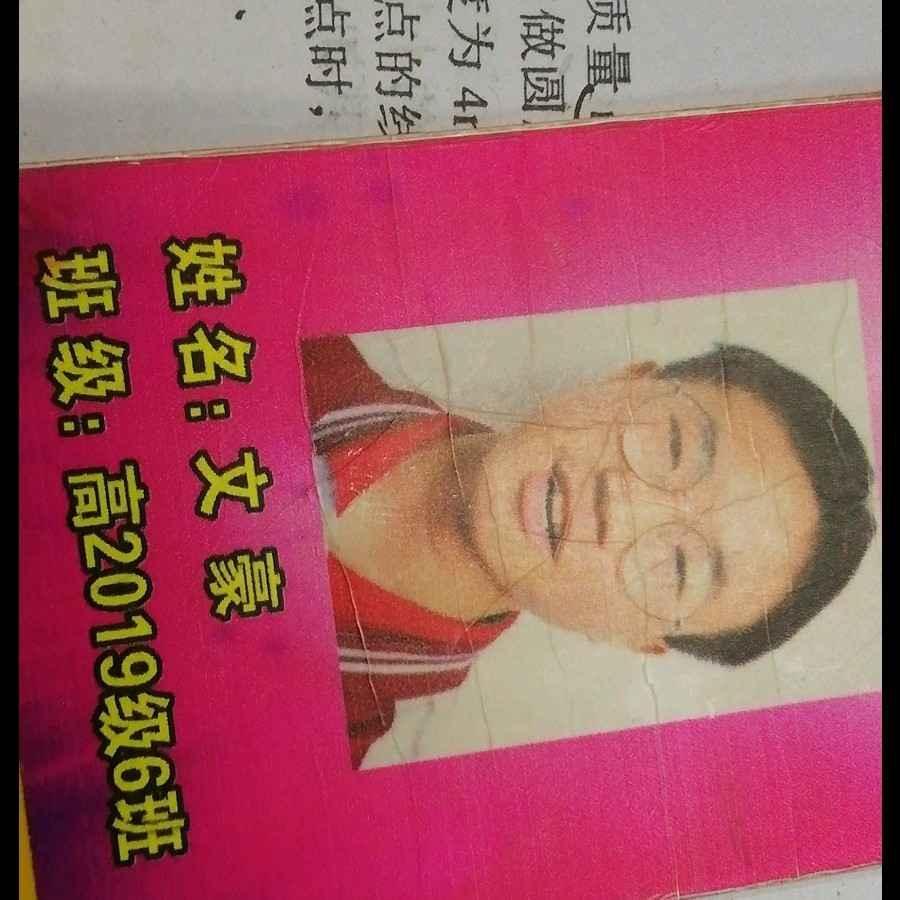 质量
做圆
为4
点的
点时，
姓名：文豪
班级：高2019级6班